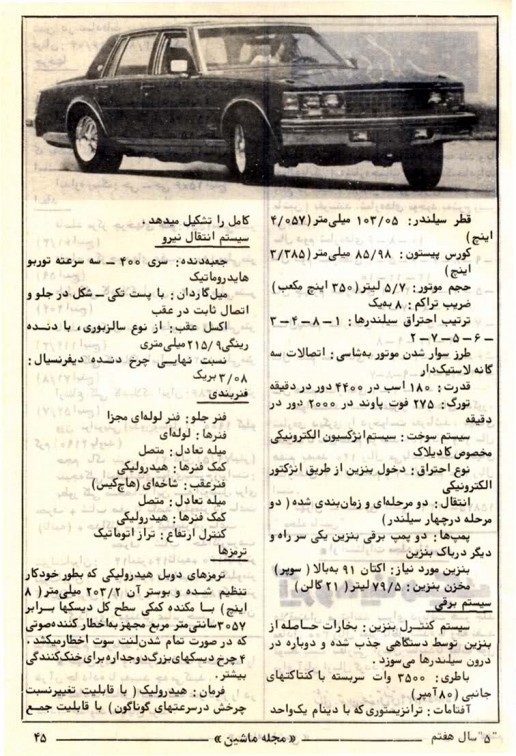 قطر سیلندر: ۱۰۳/۰۵ میلی‌متر (۴/۰۵۷
اینچ)
کورس پیستون: ۸۵/۹۸ میلی‌متر (۳/۳۸۵
اینچ)
حجم موتور: ۵/۷ لیتر (۳۵۰ اینچ مکعب)
ضریب تراکم: ۸ به‌یک
ترتیب احتراق سیلندرها: ۱ – ۸ – ۴ – ۳
– ۶ – ۵ – ۷ – ۲
طرز سوار شدن موتور به‌شاسی: اتصالات سه
گانه لاستیک‌دار
قدرت: ۱۸۰ اسب در ۴۴۰۰ دور در دقیقه
تورگ: ۲۷۵ فوت پاوند در ۲۰۰۰ دور در
دقیقه
سیستم سوخت: سیستم‌انژکسیون الکترونیکی
مخصوص کادیلاک
نوع احتراق: دخول بنزین از طریق انژکتور
الکترونیکی
انتقال: دو مرحله‌ای و زمان‌بندی شده (دو
مرحله درچهار سیلندر)
پمپ‌ها: دو پمپ برقی بنزین یکی سر راه و
دیگر درباک بنزین
بنزین مورد نیاز: اکتان ۹۱ به‌بالا (سوپر)
مخزن بنزین: ۷۹/۵ لیتر (۲۱ گالن)
سیستم برقی
سیستم کنتـرل بنزین: بخارات حاصله از
بنزین توسط دستگاهی جذب شده و دوباره در
درون سیلندرها می‌سوزد.
باطری: ۳۵۰۰ وات سربسته با کنتاکتهای
جانبی (۸۰آمپر)
آفتامات: ترانزیستوری که با دینام یک‌واحد
کامل را تشکیل میدهد.
سیستم انتقال نیرو
جعبه‌دنده: سری ۴۰۰ – سه سرعته توربو
هایدروماتیک
میل‌گاردان: با پست تکی – شکل در جلو و
اتصال ثابت در عقب
اکسل عقب: از نوع سالزبوری، با دنـده
رینگی ۲۱۵/۹ میلی‌متری
نسبت نهایـی چرخ دنـده دیفرنسیال:
۳/۰۸ بریک
فنربندی
فنر جلو: فنر لوله‌ای مجزا
فنرها: لوله‌ای
میله تعادل: متصل
کمک فنرها: هیدرولیکی
فنرعقب: شاخه‌ای (هاچ‌کیس)
میله تعادل: متصل
کمک فنرها: هیدرولیکی
کنترل ارتفاع: تراز اتوماتیک
ترمزها
ترمزهای دوبل هیدرولیکی که بطور خودکار
تنظیم شـده و بوستر آن ۲۰۳/۲ میلی‌متر (۸
اینچ) بـا مکنده کمکی سطح کل دیسکها بـرابر
۳۰۵۷سانتی‌متر مربع مجهز به‌اخطار کننده‌صوتی
که در صورت تمام شدن‌لنت سوت اخطارمیکشد.
۴ چرخ دیسکهای‌بزرگ‌دوجداره برای خنک‌کنندگی
بیشتر.
فرمان: هیدرولیک (با قابلیت تغییرنسبت
چرخش درسرعتهای گوناگون) با قابلیت جمـع
"۵" سال هفتم
«مجله ماشین»
۴۵